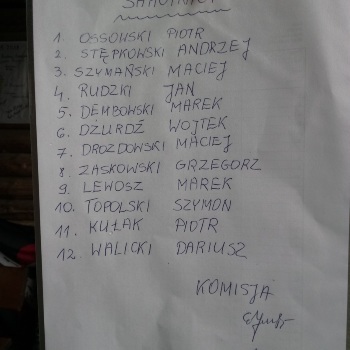 1. OSSOWSKI PIOTR
2. STĘPKOWSKI ANDRZEJ
3. SZYMAŃSKI MACIEJ
4. RUDZKI JAN
5. DEMBOWSKI MAREK
6. DZURDŹ WOJTEK
7. DROZDOWSKI MACIEJ
8. ZASKOWSKI GRZEGORZ
9. LEWOSZ MAREK
10. TOPOLSKI SZYMON
11. KUŁAK PIOTR
12. WALICKI DARIUSZ
KOMISJA